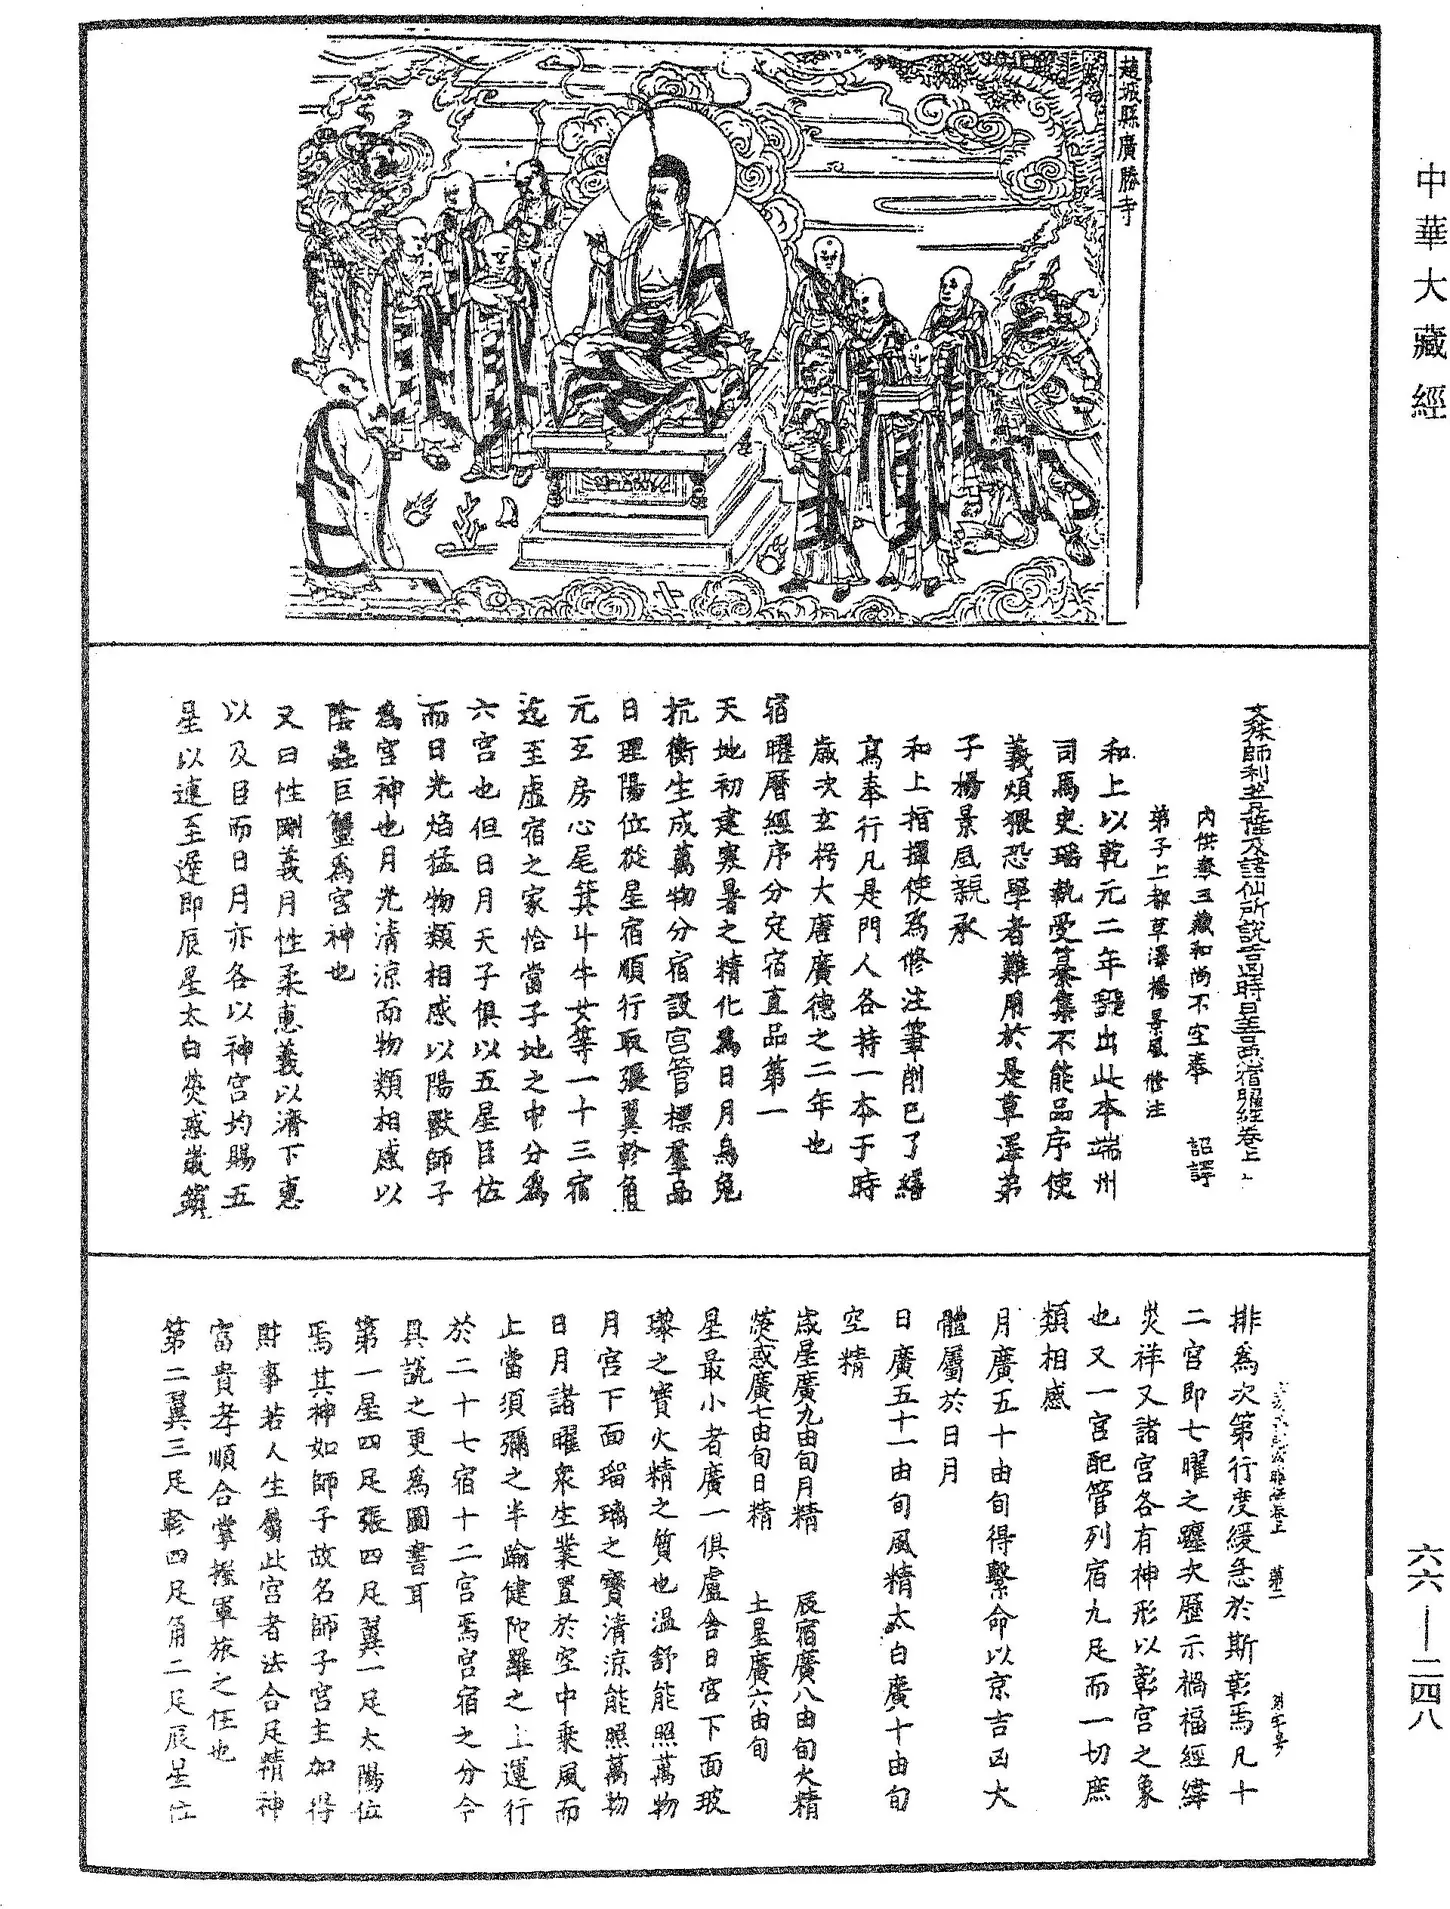 中華大藏經
趙城縣廣勝寺
文殊師利菩薩及諸仙所說吉凶時日善惡宿曜經卷上
內供奉三藏和尚不空奉 詔譯
弟子上都草澤楊景風修注
和上以乾元二年翻出此本端州
司馬史瑶執受纂集不能品序使
義煩猥恐學者難用於是草澤弟
子楊景風親承
和上指揮使為修注筆削已了繕
寫奉行凡是門人各持一本于時
歲次玄枵大唐廣德之二年也
宿曜曆經序分定宿直品第一
天地初建寒暑之精化為日月烏兔
抗衡生成萬物分宿設宮管標羣品
日理陽位從星宿順行取張翼軫角
亢互房心尾箕斗牛女等一十三宿
迄至虛宿之家恰當子地之中分為
六宮也但日月天子俱以五星臣佐
而日光焰猛物類相感以陽獸師子
為宮神也月光清涼而物類相感以
陰蟲巨蟹為宮神也
又曰性剛義月性柔惠義以濟下惠
以及臣而日月亦各以神宮均賜五
星以速至遲即辰星太白熒惑歲鎮
排為次第行度緩急於斯彰焉凡十
二宮即七曜之躔次歷示禍福經緯
災祥又諸宮各有神形以彰宮之象
也又一宮配管列宿九足而一切庶
類相感
月廣五十由旬得繫命以京吉凶大
體屬於日月
日廣五十一由旬風精太白廣十由旬
空精
歲星廣九由旬月精 辰宿廣八由旬火精
熒惑廣七由旬日精 土星廣六由旬
星最小者廣一俱盧舍日宮下面玻
瓈之寶火精之質也溫舒能照萬物
月宮下面瑠璃之寶清涼能照萬物
日月諸曜眾生業置於空中乘風而
上當須彌之半踰健陀羅之上運行
於二十七宿十二宮焉宮宿之分今
具說之更為圖書耳
第一星四足張四足翼一足太陽位
焉其神如師子故名師子宮主加得
財事若人生屬此宮者法合足精神
富貴孝順合掌握軍旅之任也
第二翼三足軫四足角二足辰星位
六六—二四八